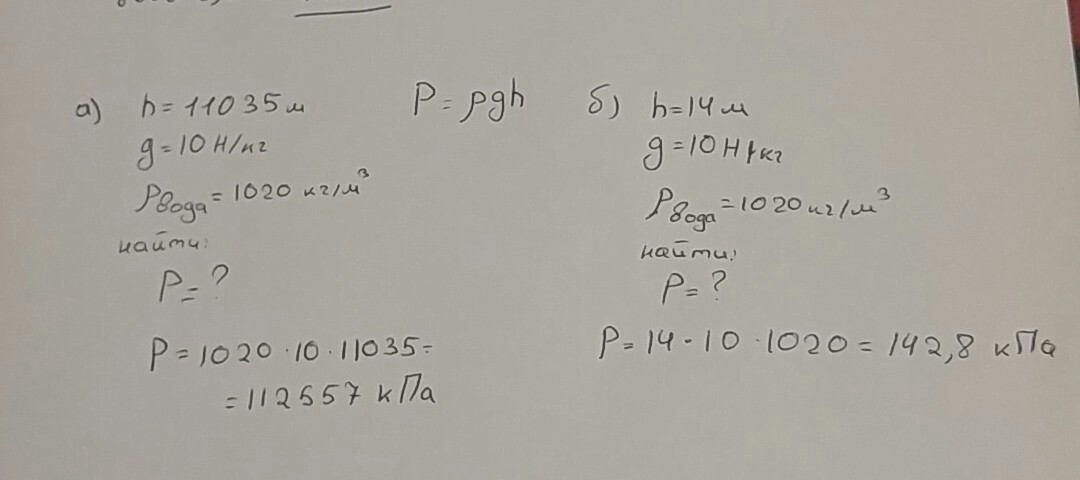 а) h = 11035 м
g = 10 Н/кг
ρвода = 1020 кг/м³
найти:
P = ?
P = 1020 · 10 · 11035 =
= 112557 кПа
P = ρgh
б) h = 14 м
g = 10 Н/кг
ρвода = 1020 кг/м³
найти:
P = ?
P = 14 · 10 · 1020 = 142,8 кПа